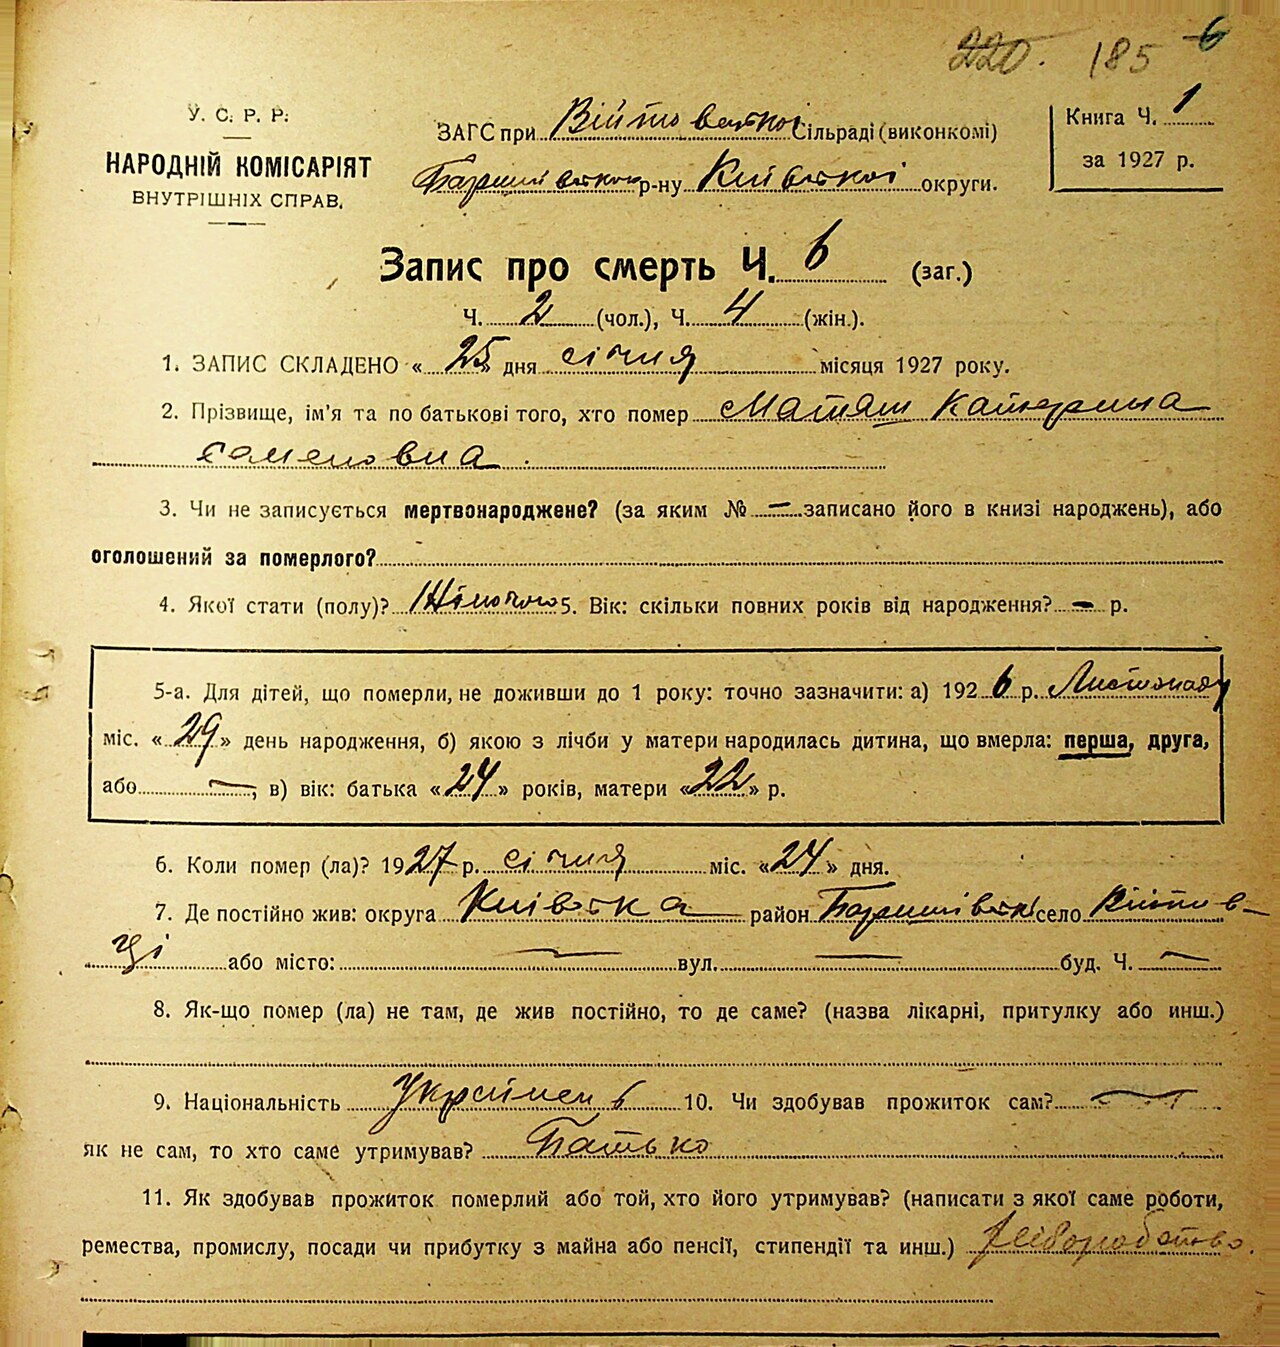 220. 185 6
У. С. Р. Р.
НАРОДНІЙ КОМІСАРІЯТ
ВНУТРІШНІХ СПРАВ.
ЗАГС при Війтовецької Сільраді (виконкомі)
Баришівського р-ну Київської округи.
Книга Ч. 1
за 1927 р.
Запис про смерть Ч. 6 (заг.)
Ч. 2 (чол.), Ч. 4 (жін.).
1. ЗАПИС СКЛАДЕНО « 25 » дня січня місяця 1927 року.
2. Прізвище, ім'я та по батькові того, хто помер Матяш Катерина
Семеновна.
3. Чи не записується мертвонароджене? (за яким № — записано його в книзі народжень), або
оголошений за померлого?
4. Якої стати (полу)? Жіночого 5. Вік: скільки повних років від народження? — р.
5-а. Для дітей, що померли, не доживши до 1 року: точно зазначити: а) 1926 р. Листопаду
міс. « 29 » день народження, б) якою з лічби у матери народилась дитина, що вмерла: перша, друга,
або —, в) вік: батька « 24 » років, матери « 22 » р.
6. Коли помер (ла)? 1927 р. січня міс. « 24 » дня.
7. Де постійно жив: округа Київська район Баришівськ село Війтов-
ці або місто: — вул. — буд. Ч. —
8. Як-що помер (ла) не там, де жив постійно, то де саме? (назва лікарні, притулку або инш.)
9. Національність Українець 10. Чи здобував прожиток сам? —
як не сам, то хто саме утримував? Батько
11. Як здобував прожиток померлий або той, хто його утримував? (написати з якої саме роботи,
ремества, промислу, посади чи прибутку з майна або пенсії, стипендії та инш.) Хліборобство.